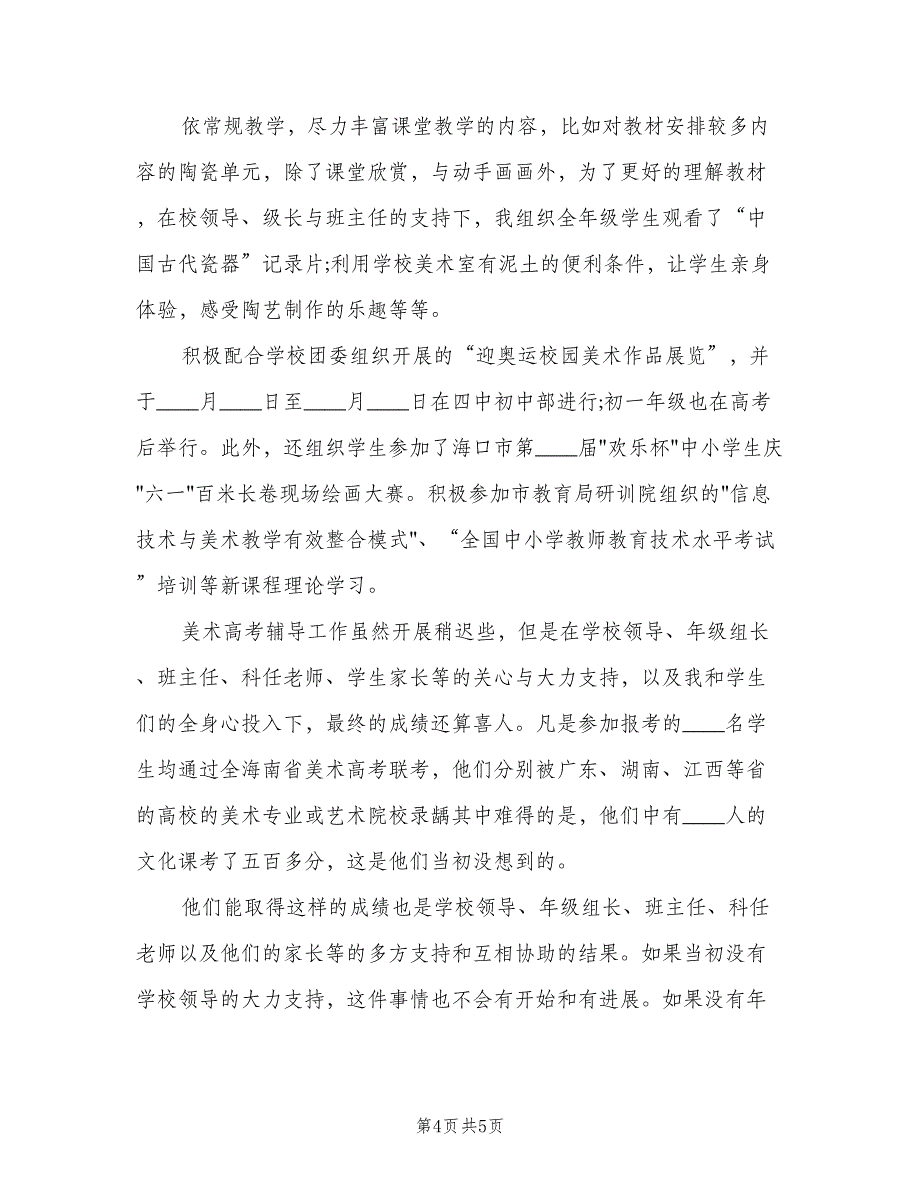 依常规教学，尽力丰富课堂教学的内容，比如对教材安排较多内
容的陶瓷单元，除了课堂欣赏，与动手画画外，为了更好的理解教材
，在校领导、级长与班主任的支持下，我组织全年级学生观看了“中
国古代瓷器”记录片;利用学校美术室有泥土的便利条件，让学生亲身
体验，感受陶艺制作的乐趣等等。
积极配合学校团委组织开展的“迎奥运校园美术作品展览”，并
于____月____日至____月____日在四中初中部进行;初一年级也在高考
后举行。此外，还组织学生参加了海口市第____届"欢乐杯"中小学生庆
"六一"百米长卷现场绘画大赛。积极参加市教育局研训院组织的"信息
技术与美术教学有效整合模式"、“全国中小学教师教育技术水平考试
”培训等新课程理论学习。
美术高考辅导工作虽然开展稍迟些，但是在学校领导、年级组长
、班主任、科任老师、学生家长等的关心与大力支持，以及我和学生
们的全身心投入下，最终的成绩还算喜人。凡是参加报考的____名学
生均通过全海南省美术高考联考，他们分别被广东、湖南、江西等省
的高校的美术专业或艺术院校录龋其中难得的是，他们中有____人的
文化课考了五百多分，这是他们当初没想到的。
他们能取得这样的成绩也是学校领导、年级组长、班主任、科任
老师以及他们的家长等的多方支持和互相协助的结果。如果当初没有
学校领导的大力支持，这件事情也不会有开始和有进展。如果没有年
第4页 共5页